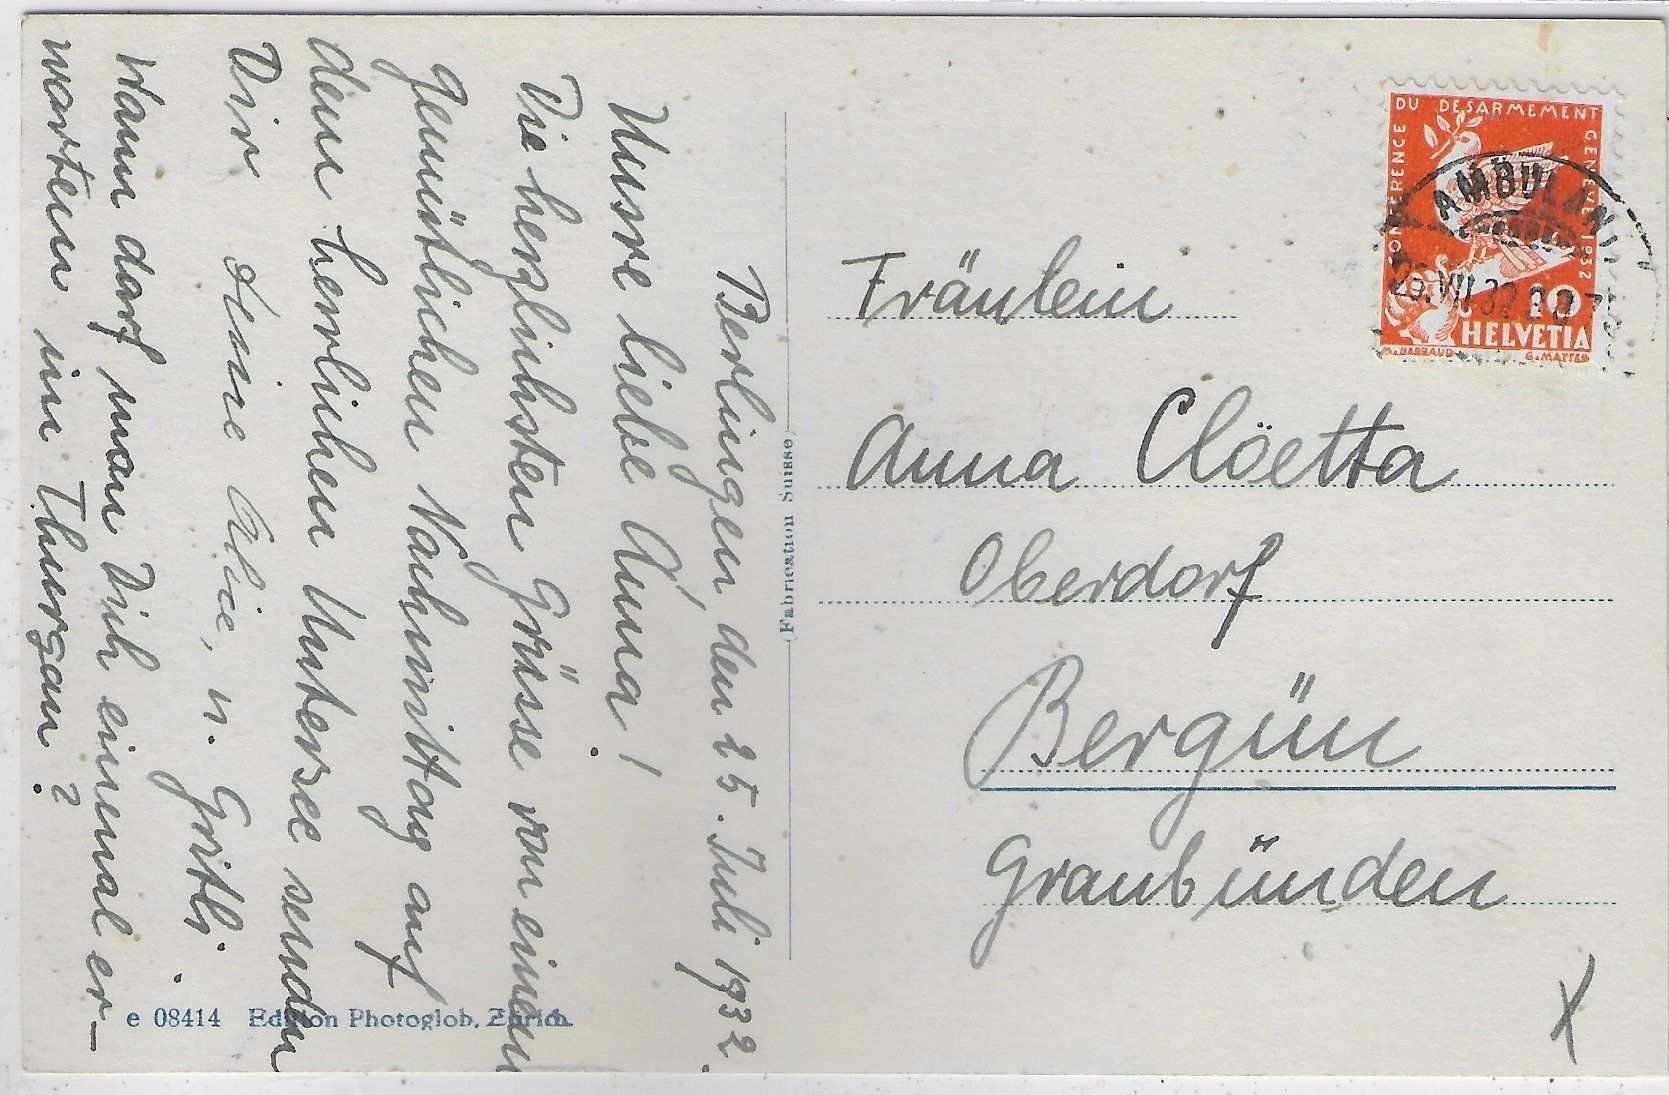 Berlingen den 25. Juli 1932.
Unsre liebe Anna!
Die herzlichsten Grüsse von einem
gemütlichen Nachmittag auf
dem herrlichen Untersee senden
Dir Deine Alice, u. Gritli.
Wann darf man Dich einmal er–
warten im Thurgau?
e 08414 Edition Photoglob, Zürich.
(Fabrication Suisse)
CONFERENCE DU DESARMEMENT GENEVE 1932
AMBULANT
VII 32
10
HELVETIA
M. BARRAUD G. MATTER
Fräulein
Anna Clöetta
Oberdorf
Bergün
Graubünden
X